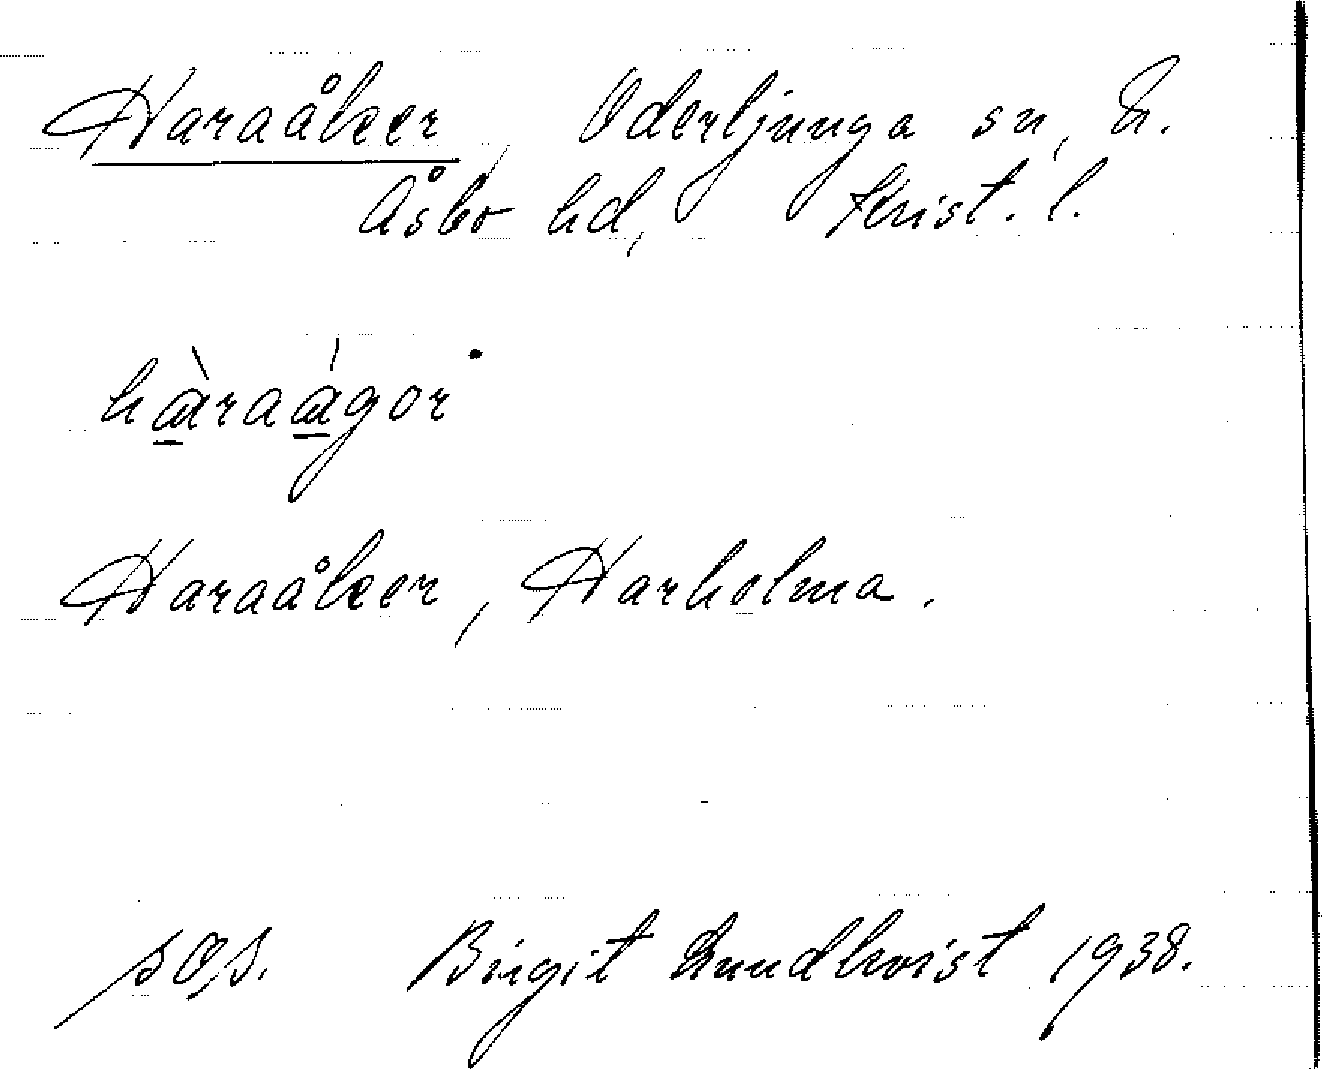 Haraåker, Oderljunga sn, Ö.
Åsbo hd, Krist. l.
hàraágor
Haraåker, Harholma.
Birgit Lundkvist 1938.